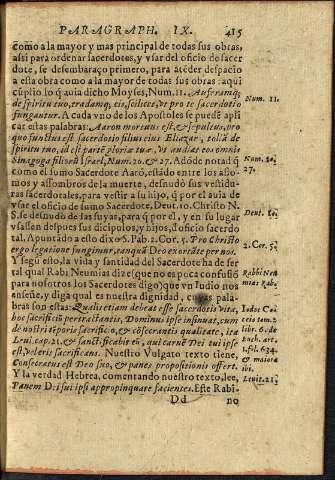 PARAGRAPH. IX. 415
cõmo a la mayor y mas principal de todas sus obras,
assi para ordenar sacerdotes, y vsar del oficio de sacer
dote, se desembaraço primero, para atẽder despacio
a esta obra como a la mayor de todas sus obras: aqui
cũplio lo q̃ auia dicho Moyses, Num. 11. Auferamq;
de spiritu tuo, tradamq; eis, scilicet, vt pro te sacerdotio
fungantur. A cada vno de los Apostoles se puede apli
car estas palabras: Aaron mortuus est, & sepultus, pro
quo functus est sacerdotio filius eius Eliazar, tolã de
spiritu tuo, id est parte gloria tuæ, vt audiat eos omnis
Sinagoga filiorũ Israel, Num. 20. & 27. Adõde notad q̃
como el sumo Sacerdote Aarõ, estãdo entre los asso-
mos y assombros de la muerte, desnudò sus vestidu-
ras sacerdotales, para vestir a su hijo, q̃ por el auia de
vsar el oficio de sumo Sacerdote, Deut. 10. Christo N.
S. se desnudò de las suyas, para q̃ por el, y en su lugar
vsassen despues sus dicipulos, y hijos, d'oficio sacerdo
tal. Apuntado a esto dixo S. Pab. 2. Cor. 5. Pro Christo
ergo legatione fungimur, tanquã Deo exortãte per nos.
Y segũ esto, la vida y santidad del Sacerdote ha de ser
tal qual Rabi Neumias dize (que no es poca confusiõ
para nosotros los Sacerdotes digo) que vn Iudio nos
enseñe, y diga qual es nuestra dignidad, cuyas pala-
bras son estas: Qualis etiam debeat esse sacerdotis vita,
hoc sacrificiũ pertractantis, Dominus ipse insinuat, cum
de nostri tẽporis sacrificio, & cõsecrantis qualitate, ita
Leui, cap. 21. & sanctificabit eũ, qui carnẽ Dei tui ipse
est, veleris sacrificans. Nuestro Vulgato texto tiene,
Consecratus est Deo suo, & panes propositionis offert.
Y la verdad Hebrea, comentando nuestro texto, lee,
Panem D. i sui ipsi appropinquare facientes. Este Rabi-
Dd no
Num. 11.
Num. 20.
27.
Deut. 10.
2. Cor. 5.
Rabbi Nee
mias Rab.
Iudoc Coc
cius tom. 2
lib. 6. de
Euch. art.
1. fol. 634.
& maiora
ibi.
Leuit. 21.